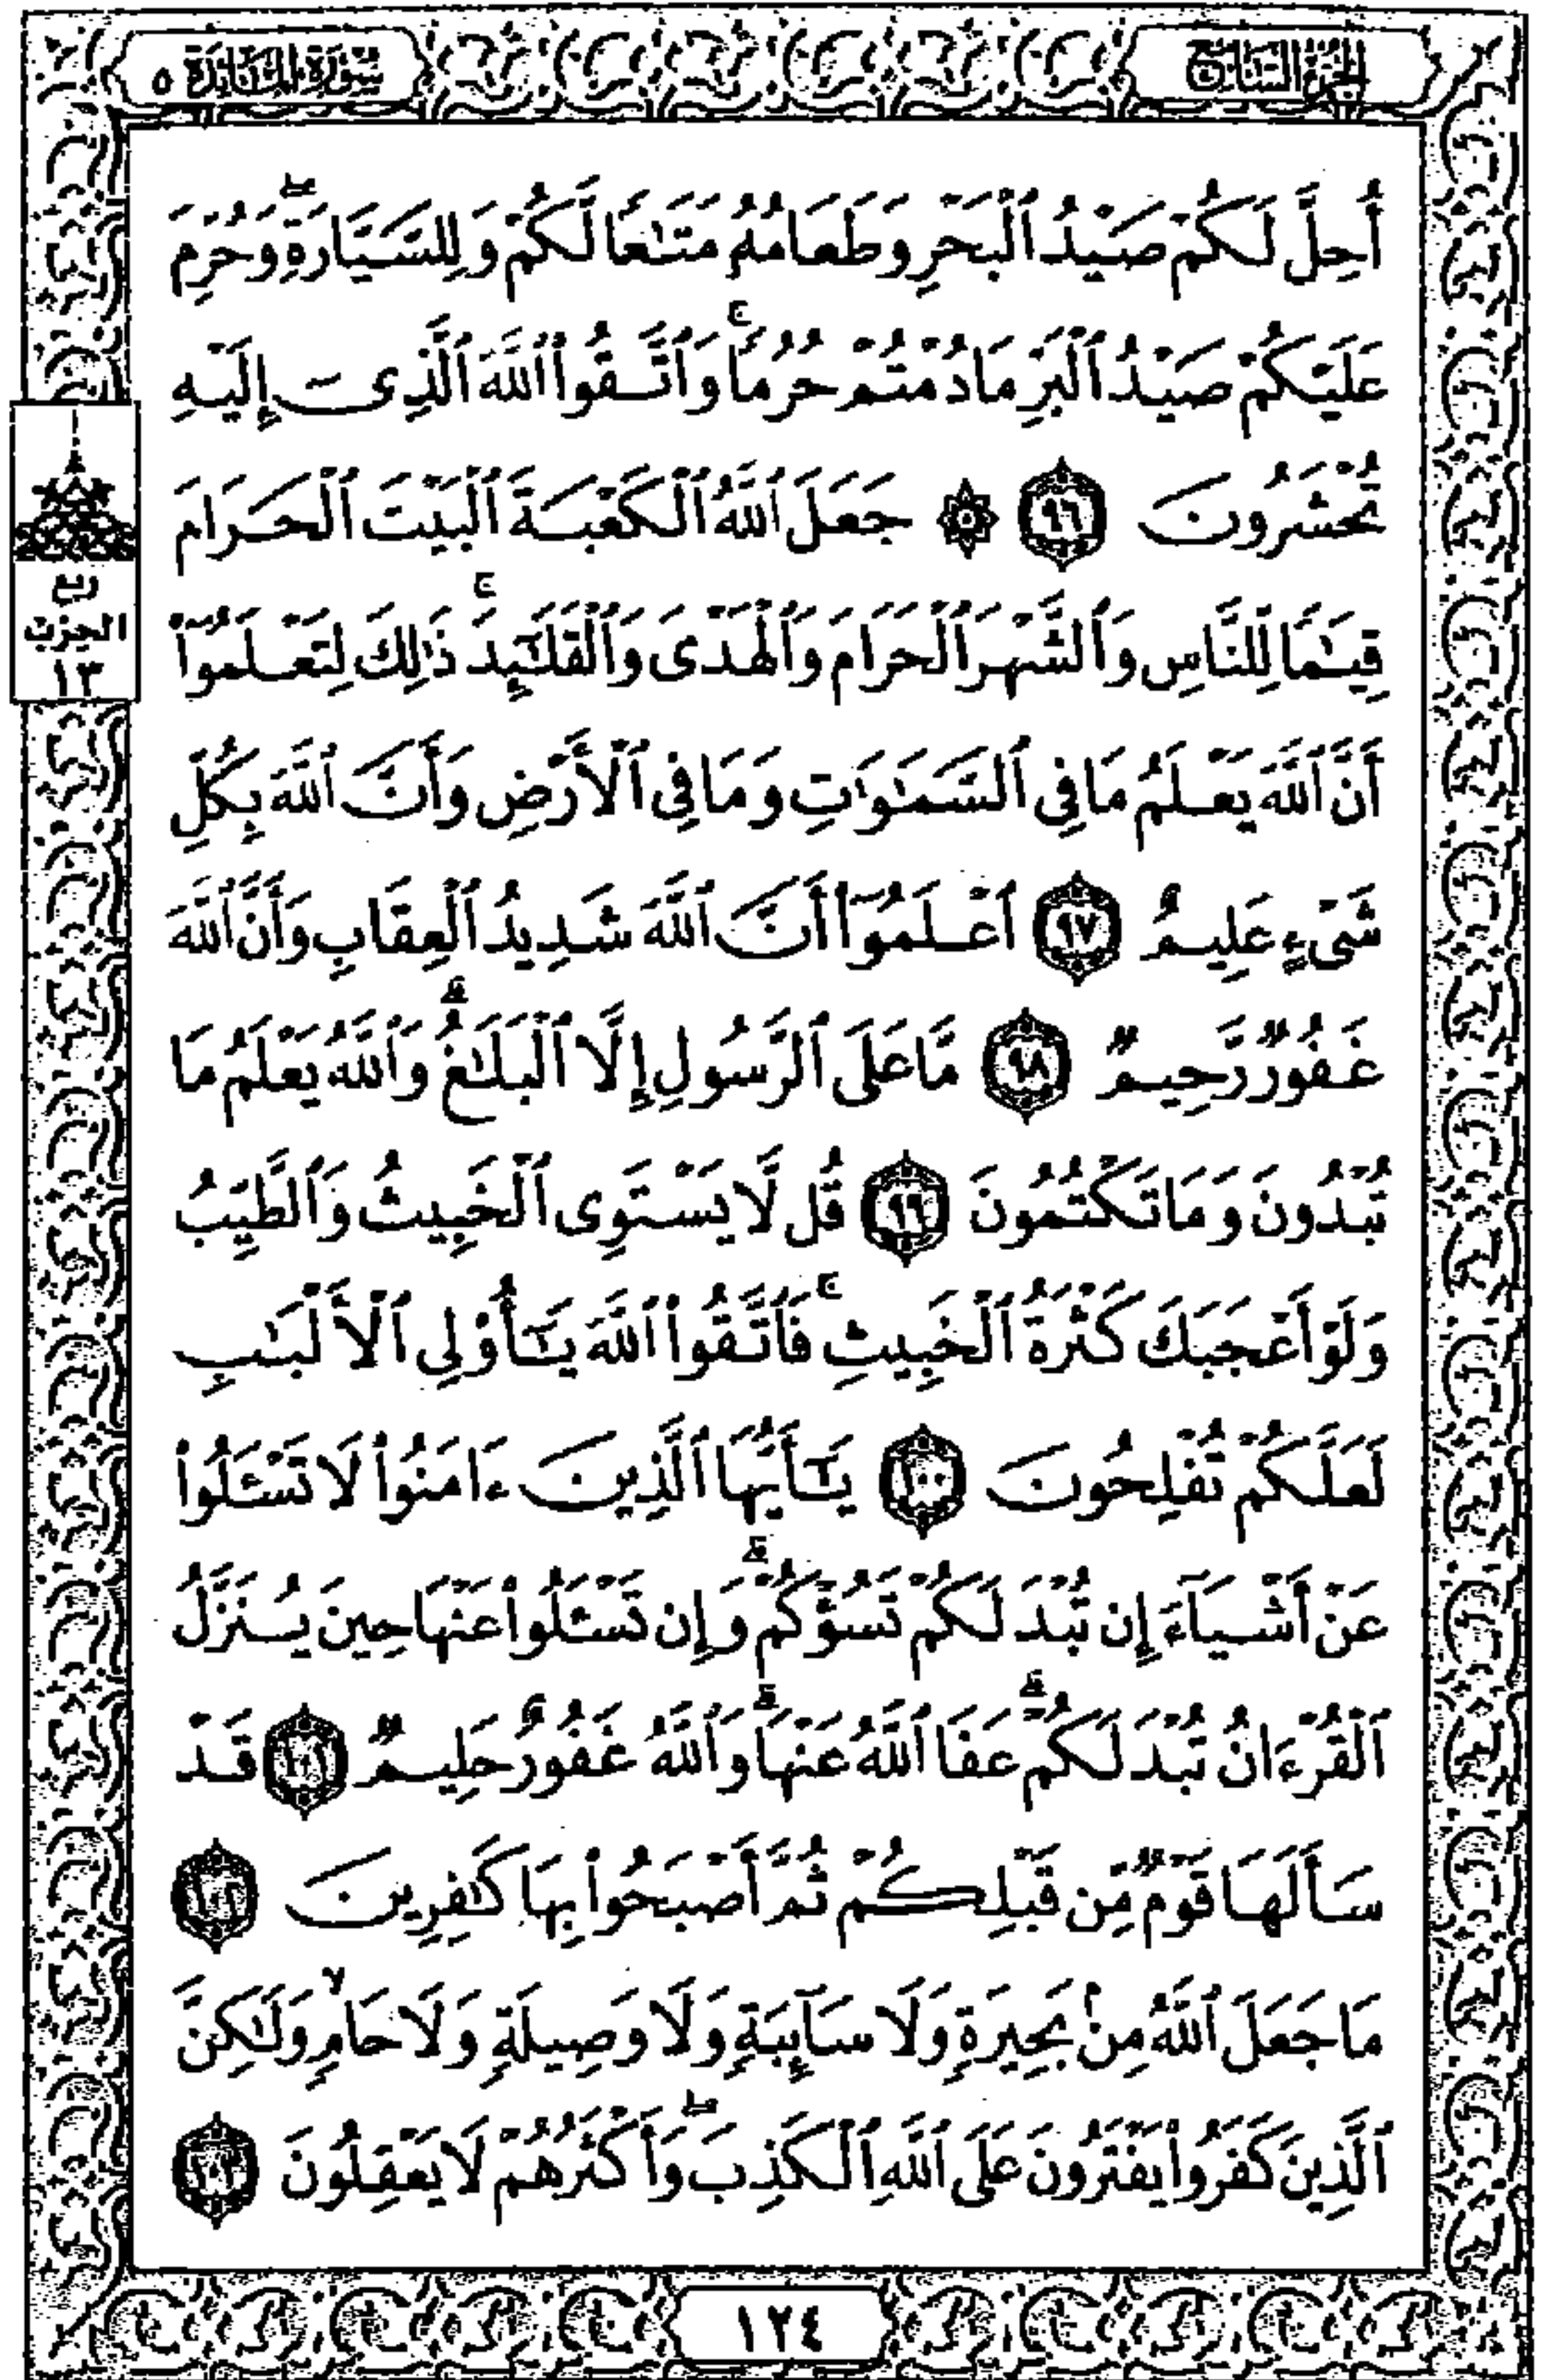 الجزء السابع
سورة المائدة ٥
أُحِلَّ لَكُمْ صَيْدُ ٱلْبَحْرِ وَطَعَامُهُۥ مَتَـٰعًا لَّكُمْ وَلِلسَّيَّارَةِ ۖ وَحُرِّمَ
عَلَيْكُمْ صَيْدُ ٱلْبَرِّ مَا دُمْتُمْ حُرُمًا ۗ وَٱتَّقُوا۟ ٱللَّهَ ٱلَّذِىٓ إِلَيْهِ
تُحْشَرُونَ ٩٦ ۞ جَعَلَ ٱللَّهُ ٱلْكَعْبَةَ ٱلْبَيْتَ ٱلْحَرَامَ
قِيَـٰمًا لِّلنَّاسِ وَٱلشَّهْرَ ٱلْحَرَامَ وَٱلْهَدْىَ وَٱلْقَلَـٰٓئِدَ ۚ ذَٰلِكَ لِتَعْلَمُوٓا۟
أَنَّ ٱللَّهَ يَعْلَمُ مَا فِى ٱلسَّمَـٰوَٰتِ وَمَا فِى ٱلْأَرْضِ وَأَنَّ ٱللَّهَ بِكُلِّ
شَىْءٍ عَلِيمٌ ٩٧ ٱعْلَمُوٓا۟ أَنَّ ٱللَّهَ شَدِيدُ ٱلْعِقَابِ وَأَنَّ ٱللَّهَ
غَفُورٌ رَّحِيمٌ ٩٨ مَّا عَلَى ٱلرَّسُولِ إِلَّا ٱلْبَلَـٰغُ ۗ وَٱللَّهُ يَعْلَمُ مَا
تُبْدُونَ وَمَا تَكْتُمُونَ ٩٩ قُل لَّا يَسْتَوِى ٱلْخَبِيثُ وَٱلطَّيِّبُ
وَلَوْ أَعْجَبَكَ كَثْرَةُ ٱلْخَبِيثِ ۚ فَٱتَّقُوا۟ ٱللَّهَ يَـٰٓأُو۟لِى ٱلْأَلْبَـٰبِ
لَعَلَّكُمْ تُفْلِحُونَ ١٠٠ يَـٰٓأَيُّهَا ٱلَّذِينَ ءَامَنُوا۟ لَا تَسْـَٔلُوا۟
عَنْ أَشْيَآءَ إِن تُبْدَ لَكُمْ تَسُؤْكُمْ ۗ وَإِن تَسْـَٔلُوا۟ عَنْهَا حِينَ يُنَزَّلُ
ٱلْقُرْءَانُ تُبْدَ لَكُمْ ۗ عَفَا ٱللَّهُ عَنْهَا ۗ وَٱللَّهُ غَفُورٌ حَلِيمٌ ١٠١ قَدْ
سَأَلَهَا قَوْمٌ مِّن قَبْلِكُمْ ثُمَّ أَصْبَحُوا۟ بِهَا كَـٰفِرِينَ ١٠٢
مَا جَعَلَ ٱللَّهُ مِنۢ بَحِيرَةٍ وَلَا سَآئِبَةٍ وَلَا وَصِيلَةٍ وَلَا حَامٍ ۙ وَلَـٰكِنَّ
ٱلَّذِينَ كَفَرُوا۟ يَفْتَرُونَ عَلَى ٱللَّهِ ٱلْكَذِبَ ۖ وَأَكْثَرُهُمْ لَا يَعْقِلُونَ ١٠٣
ربع
الحزب
١٣
١٢٤